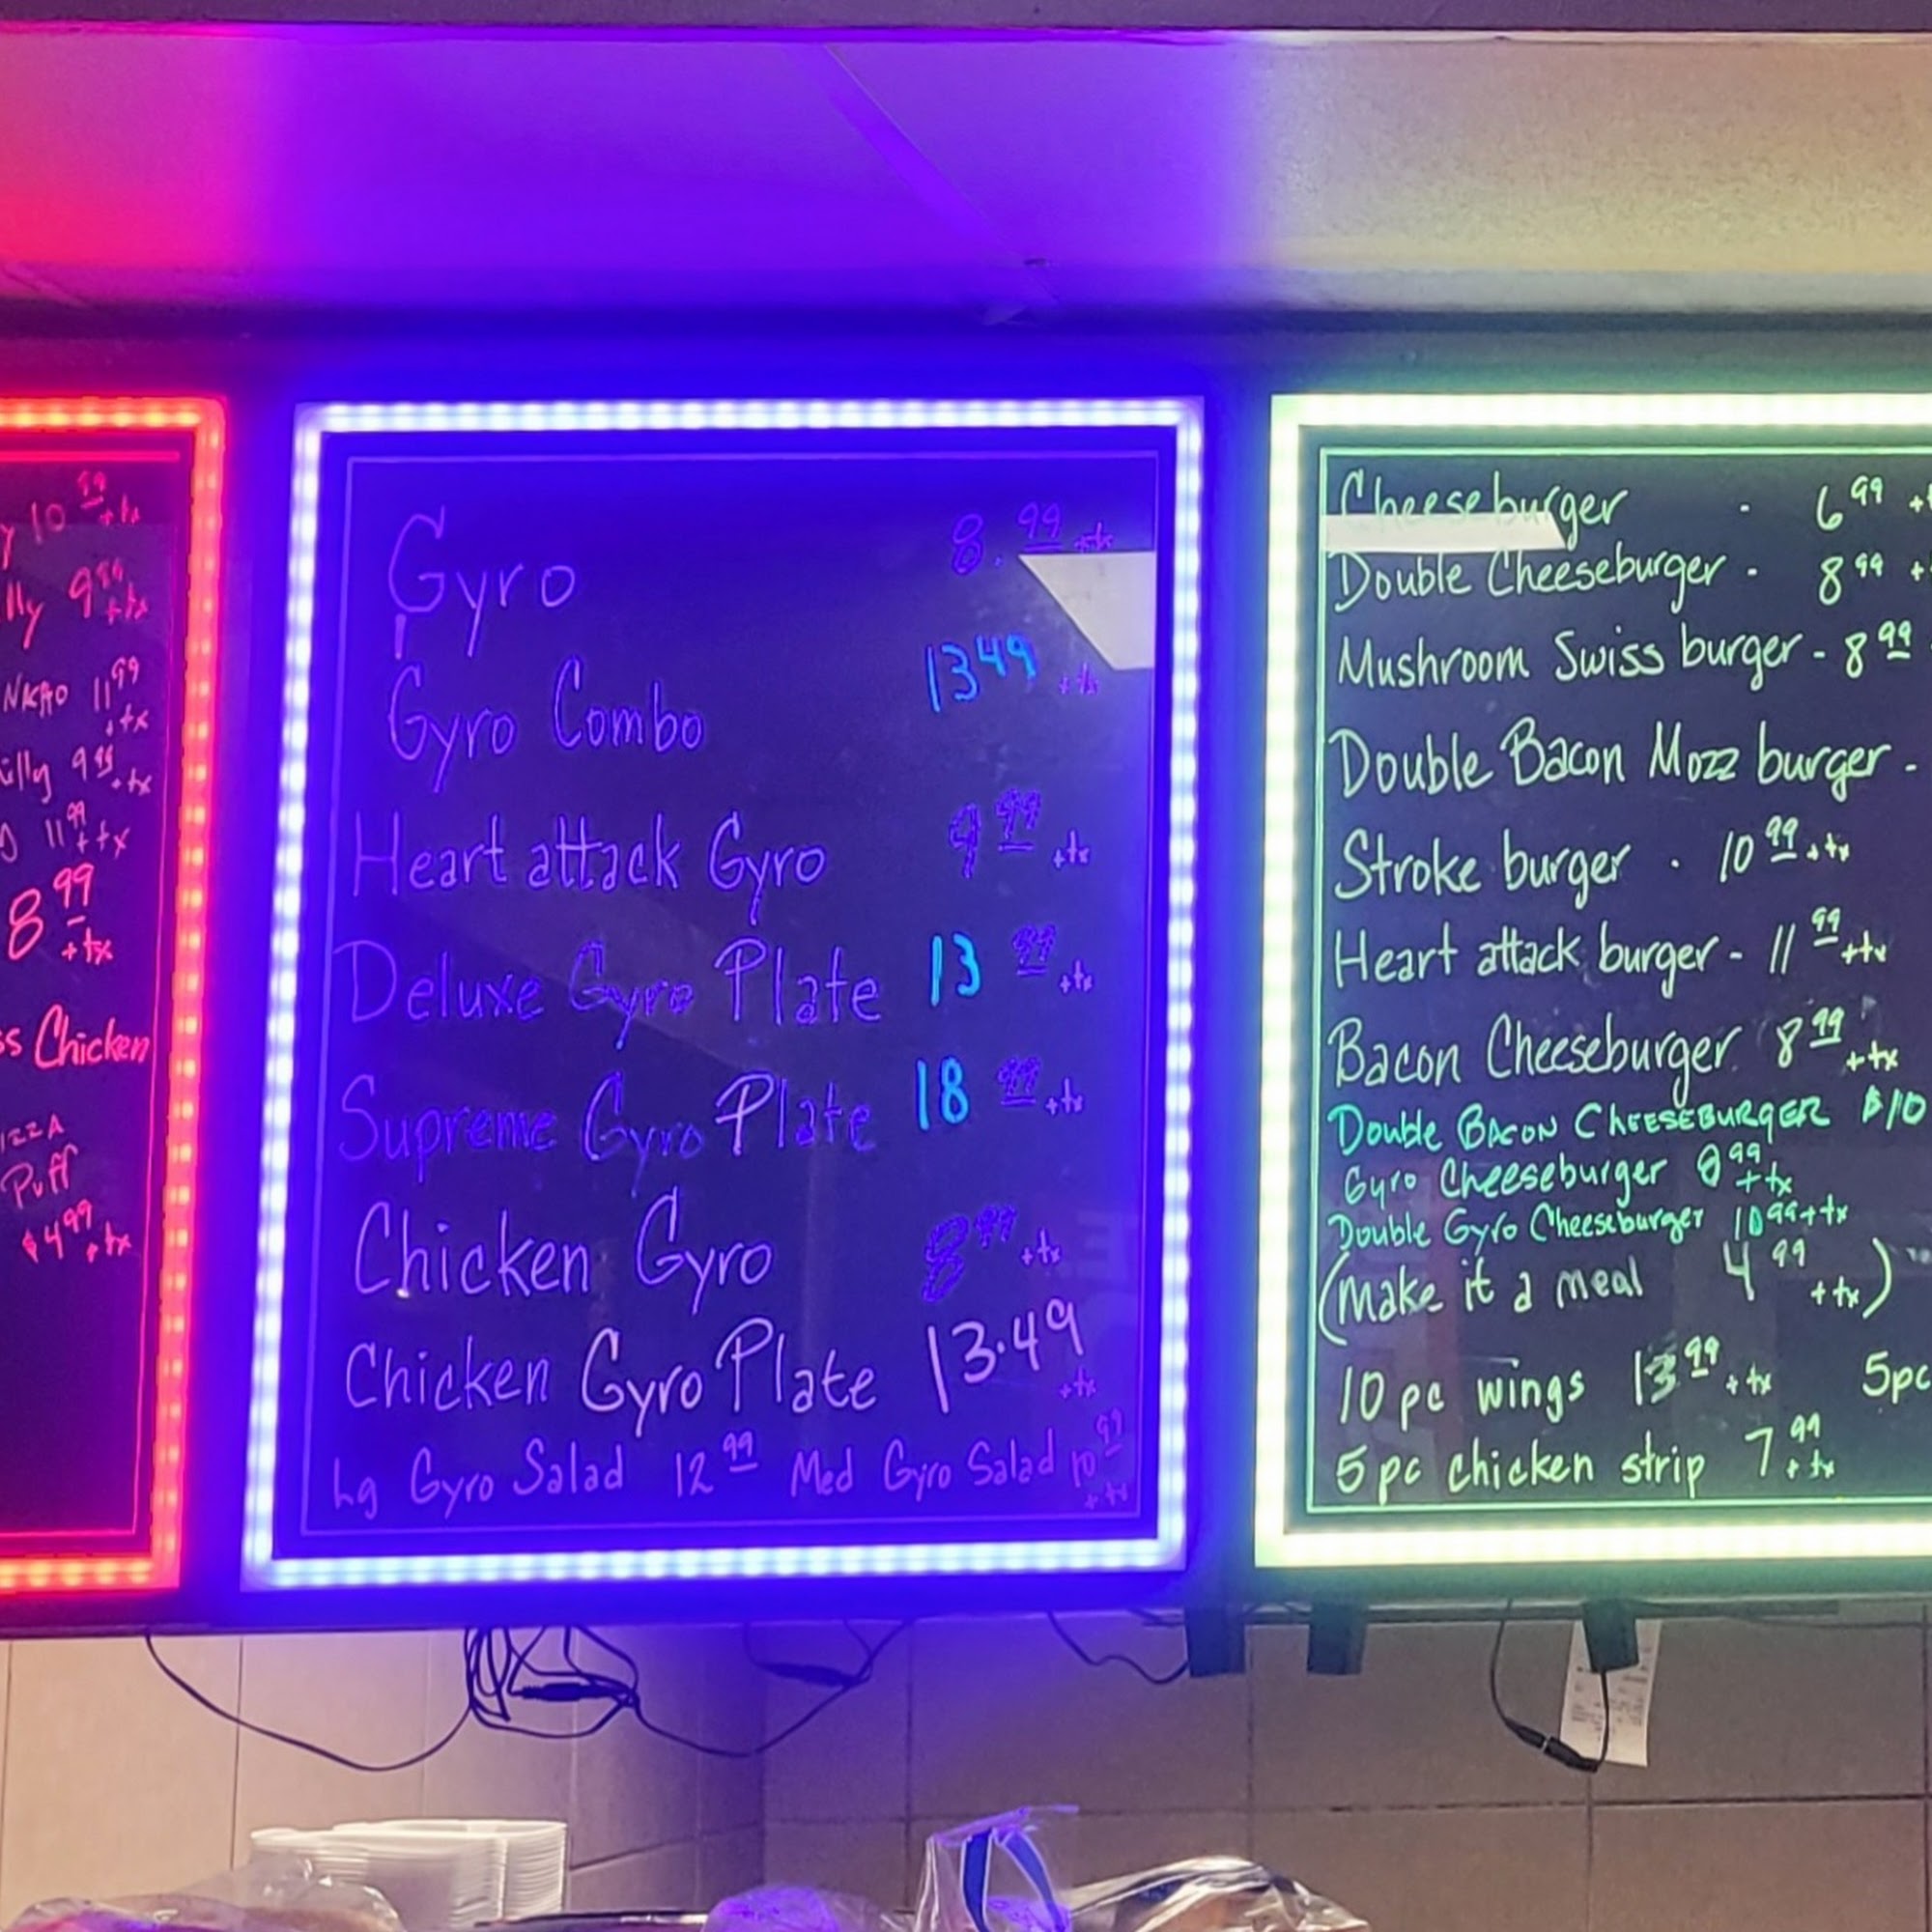 10 99 +tx
lly 9 99 +tx
11 99 +tx
9 99 +tx
11 99 +tx
8 99 +tx
Chicken
Puff
$4 99 +tx
Gyro 8.99 +tx
Gyro Combo 13 49 +tx
Heart attack Gyro 9 99 +tx
Deluxe Gyro Plate 13 99 +tx
Supreme Gyro Plate 18 99 +tx
Chicken Gyro 8 99 +tx
Chicken Gyro Plate 13.49 +tx
Lg Gyro Salad 12 99 Med Gyro Salad 10 99 +tx
Cheeseburger - 6 99 +
Double Cheeseburger - 8 99 +
Mushroom Swiss burger - 8 99
Double Bacon Mozz burger -
Stroke burger - 10 99 +tx
Heart attack burger - 11 99 +tx
Bacon Cheeseburger 8 99 +tx
Double BACON CHEESEBURGER $10
Gyro Cheeseburger 99 +tx
Double Gyro Cheeseburger 10 99 +tx
(Make it a meal 4 99 +tx)
10 pc wings 13 99 +tx 5pc
5 pc chicken strip 7 99 +tx